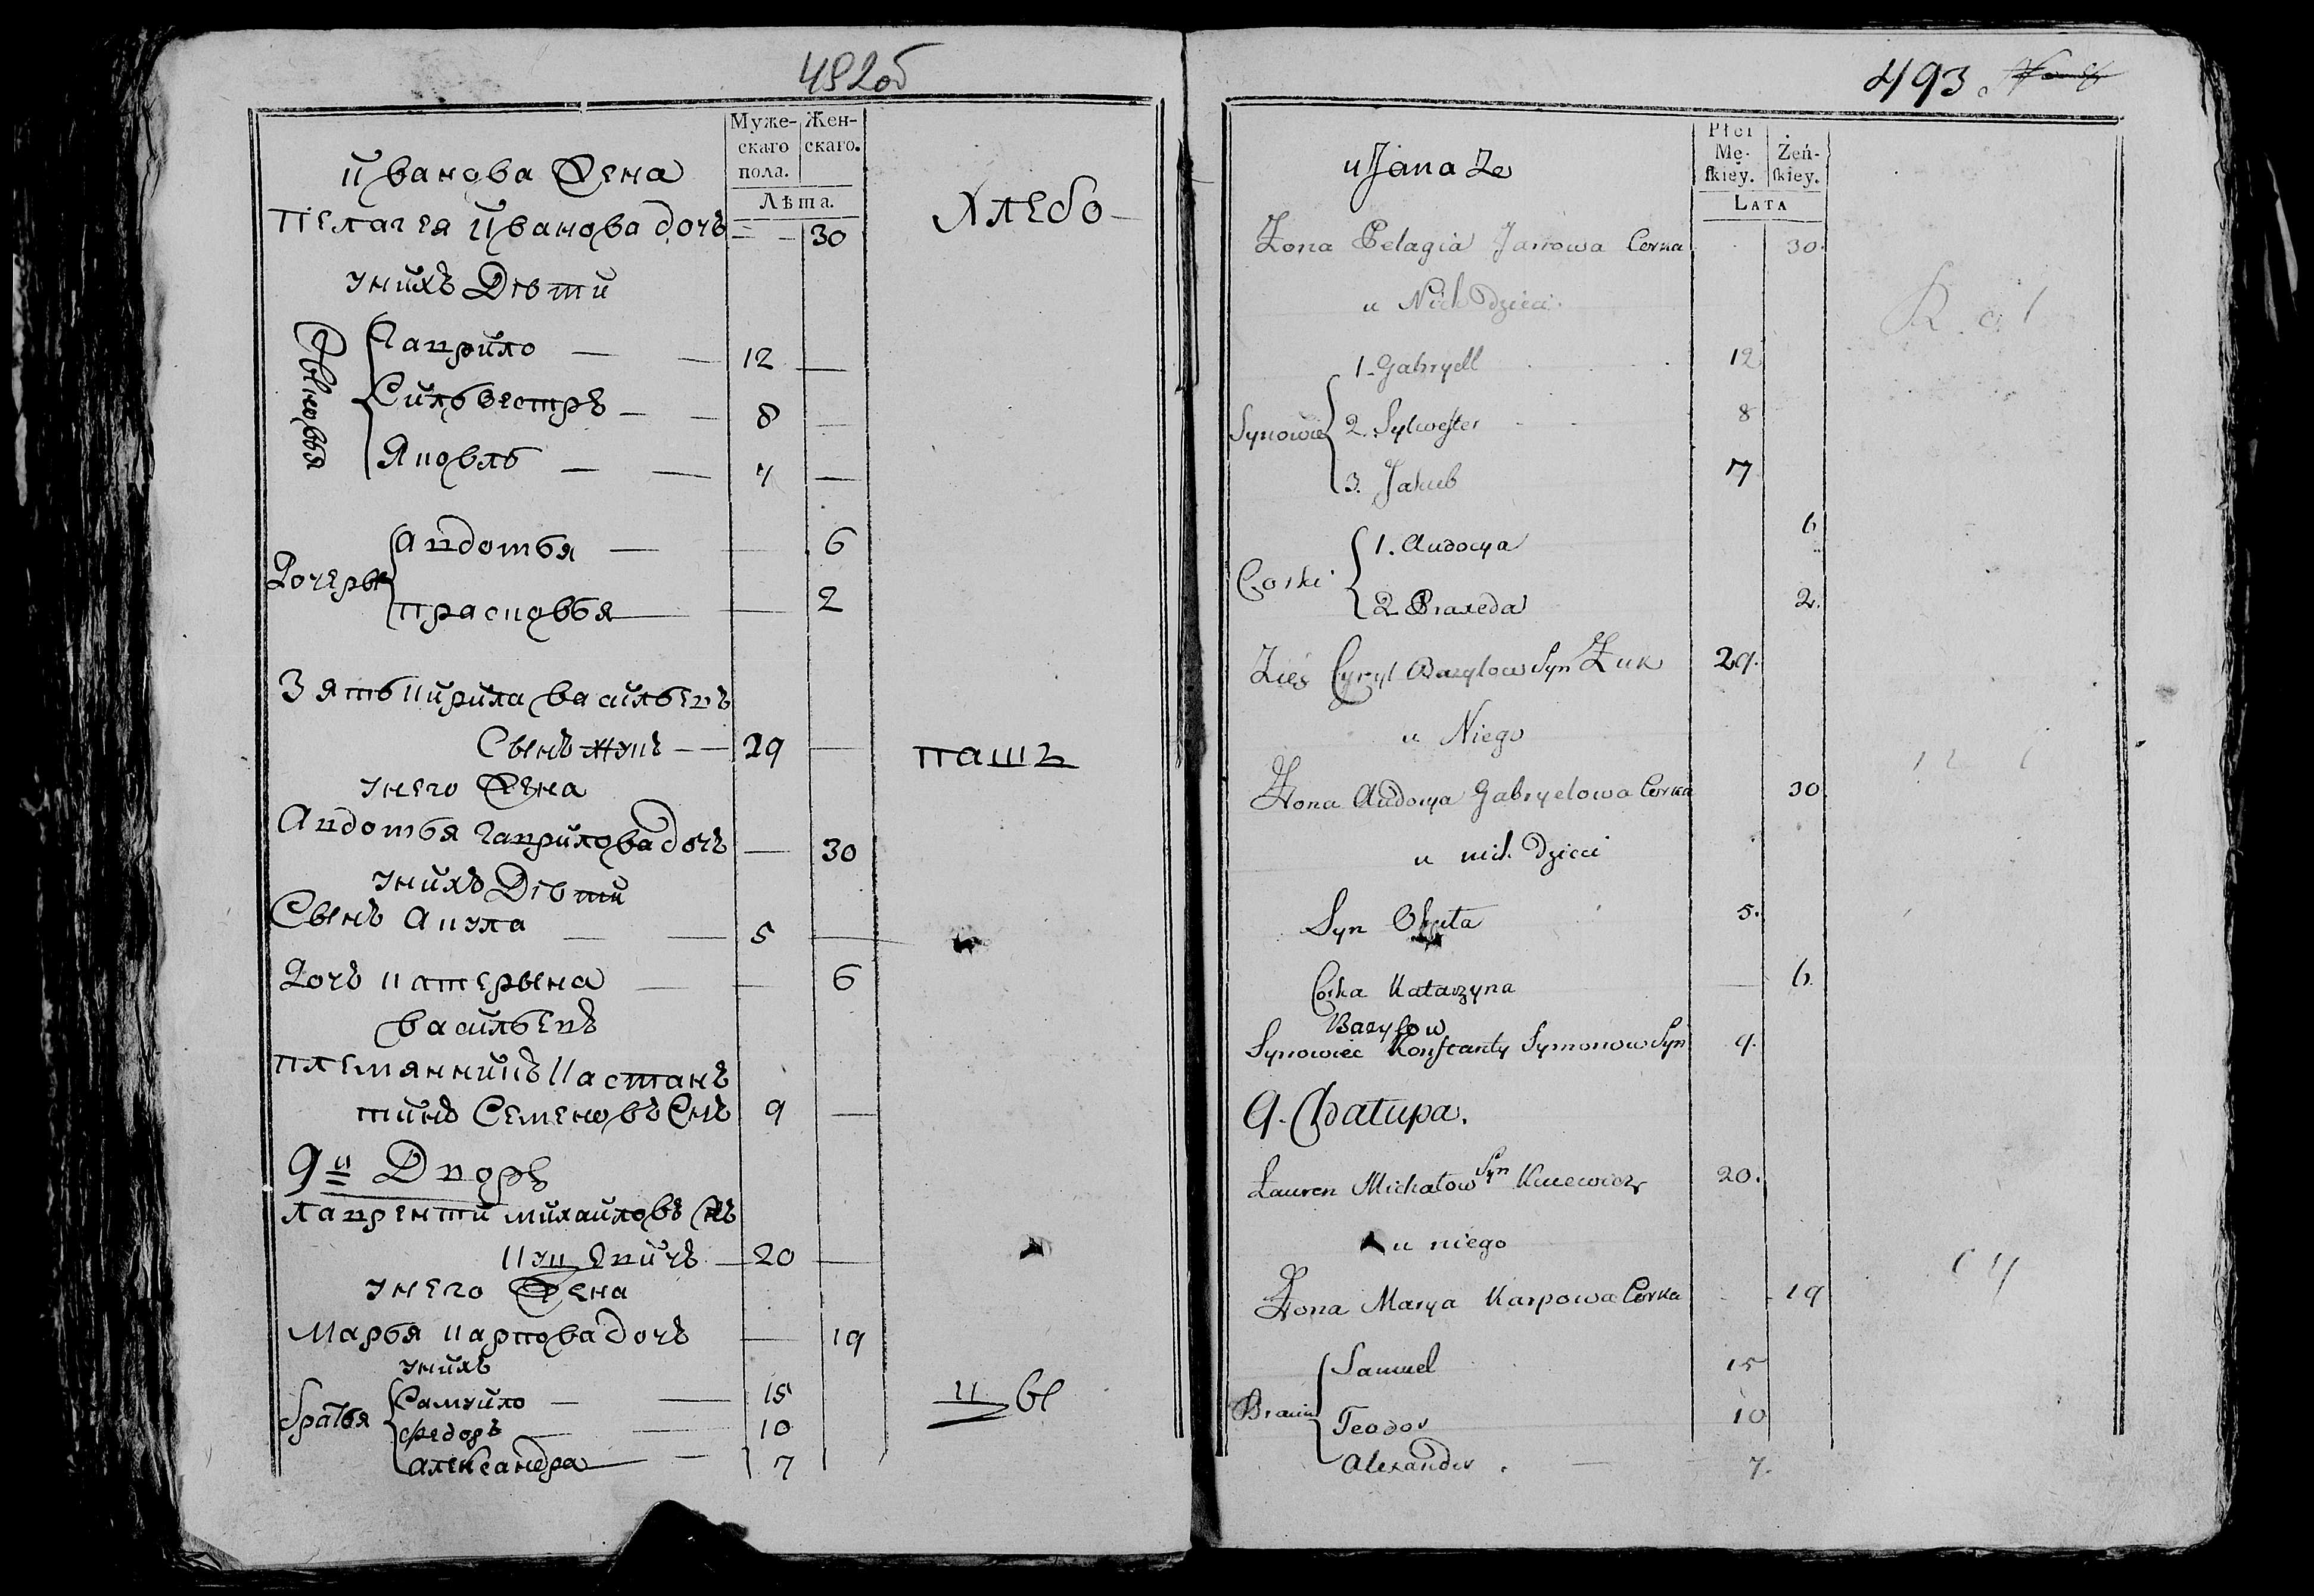 492об
Муже-
скаго
пола.
Жен-
скаго.
Лѣта.
Иванова Жена
Пелагея Иванова дочь — — 30
Хлебо-
у нихъ Дѣти
Сыновья
Гаврило — — 12 —
Сильвестръ — — 8 —
Яковль — — 7 —
Дочеры
Авдотья — — 6
Прасковья — — 2
Зять Кирила Васильевъ
Сынъ Жукъ — — 29 —
пашъ
у него Жена
Авдотья Гаврилова дочь — 30
у нихъ Дѣти
Сынъ Акула — — 5 —
Дочь Катерына — — 6
Васильевъ
племянникъ Констан
тинъ Семеновъ Снъ 9 —
9й Дворъ
Лаврентй Михайловъ Снъ
— 20 —
у него Жена
Марья Карпова дочь — 19
у нихъ
братья
Самуйло — — 15
Федоръ — — 10
Александра — — 7
цы
493.
Płci
Mę-
ſkiey.
Żeń-
ſkiey.
LATA
u Jana Ze
Zona Pelagia Janowa Corka 30.
u Nich Dzieci.
Synowie
1. Gabryell 12
2. Sylwester 8
3. Jakub 7
Corki
1. Audocya 6
2. Praxeda 2.
Zięć Cyryl Bazylow Syn Żuk 29.
u Niego
Zona Audocya Gabryelowa Corka 30
u nich Dzieci
Syn Okuta 5.
Corka Katarzyna 6.
Bazylow
Synowiec Konstanty Symonow Syn 9.
9. Chatupa.
Lauren Michałow Syn 20.
u niego
Zona Marya Karpowa Corka 19
Bracia
Samuel 15
Teodor 10
Alexander . 7.